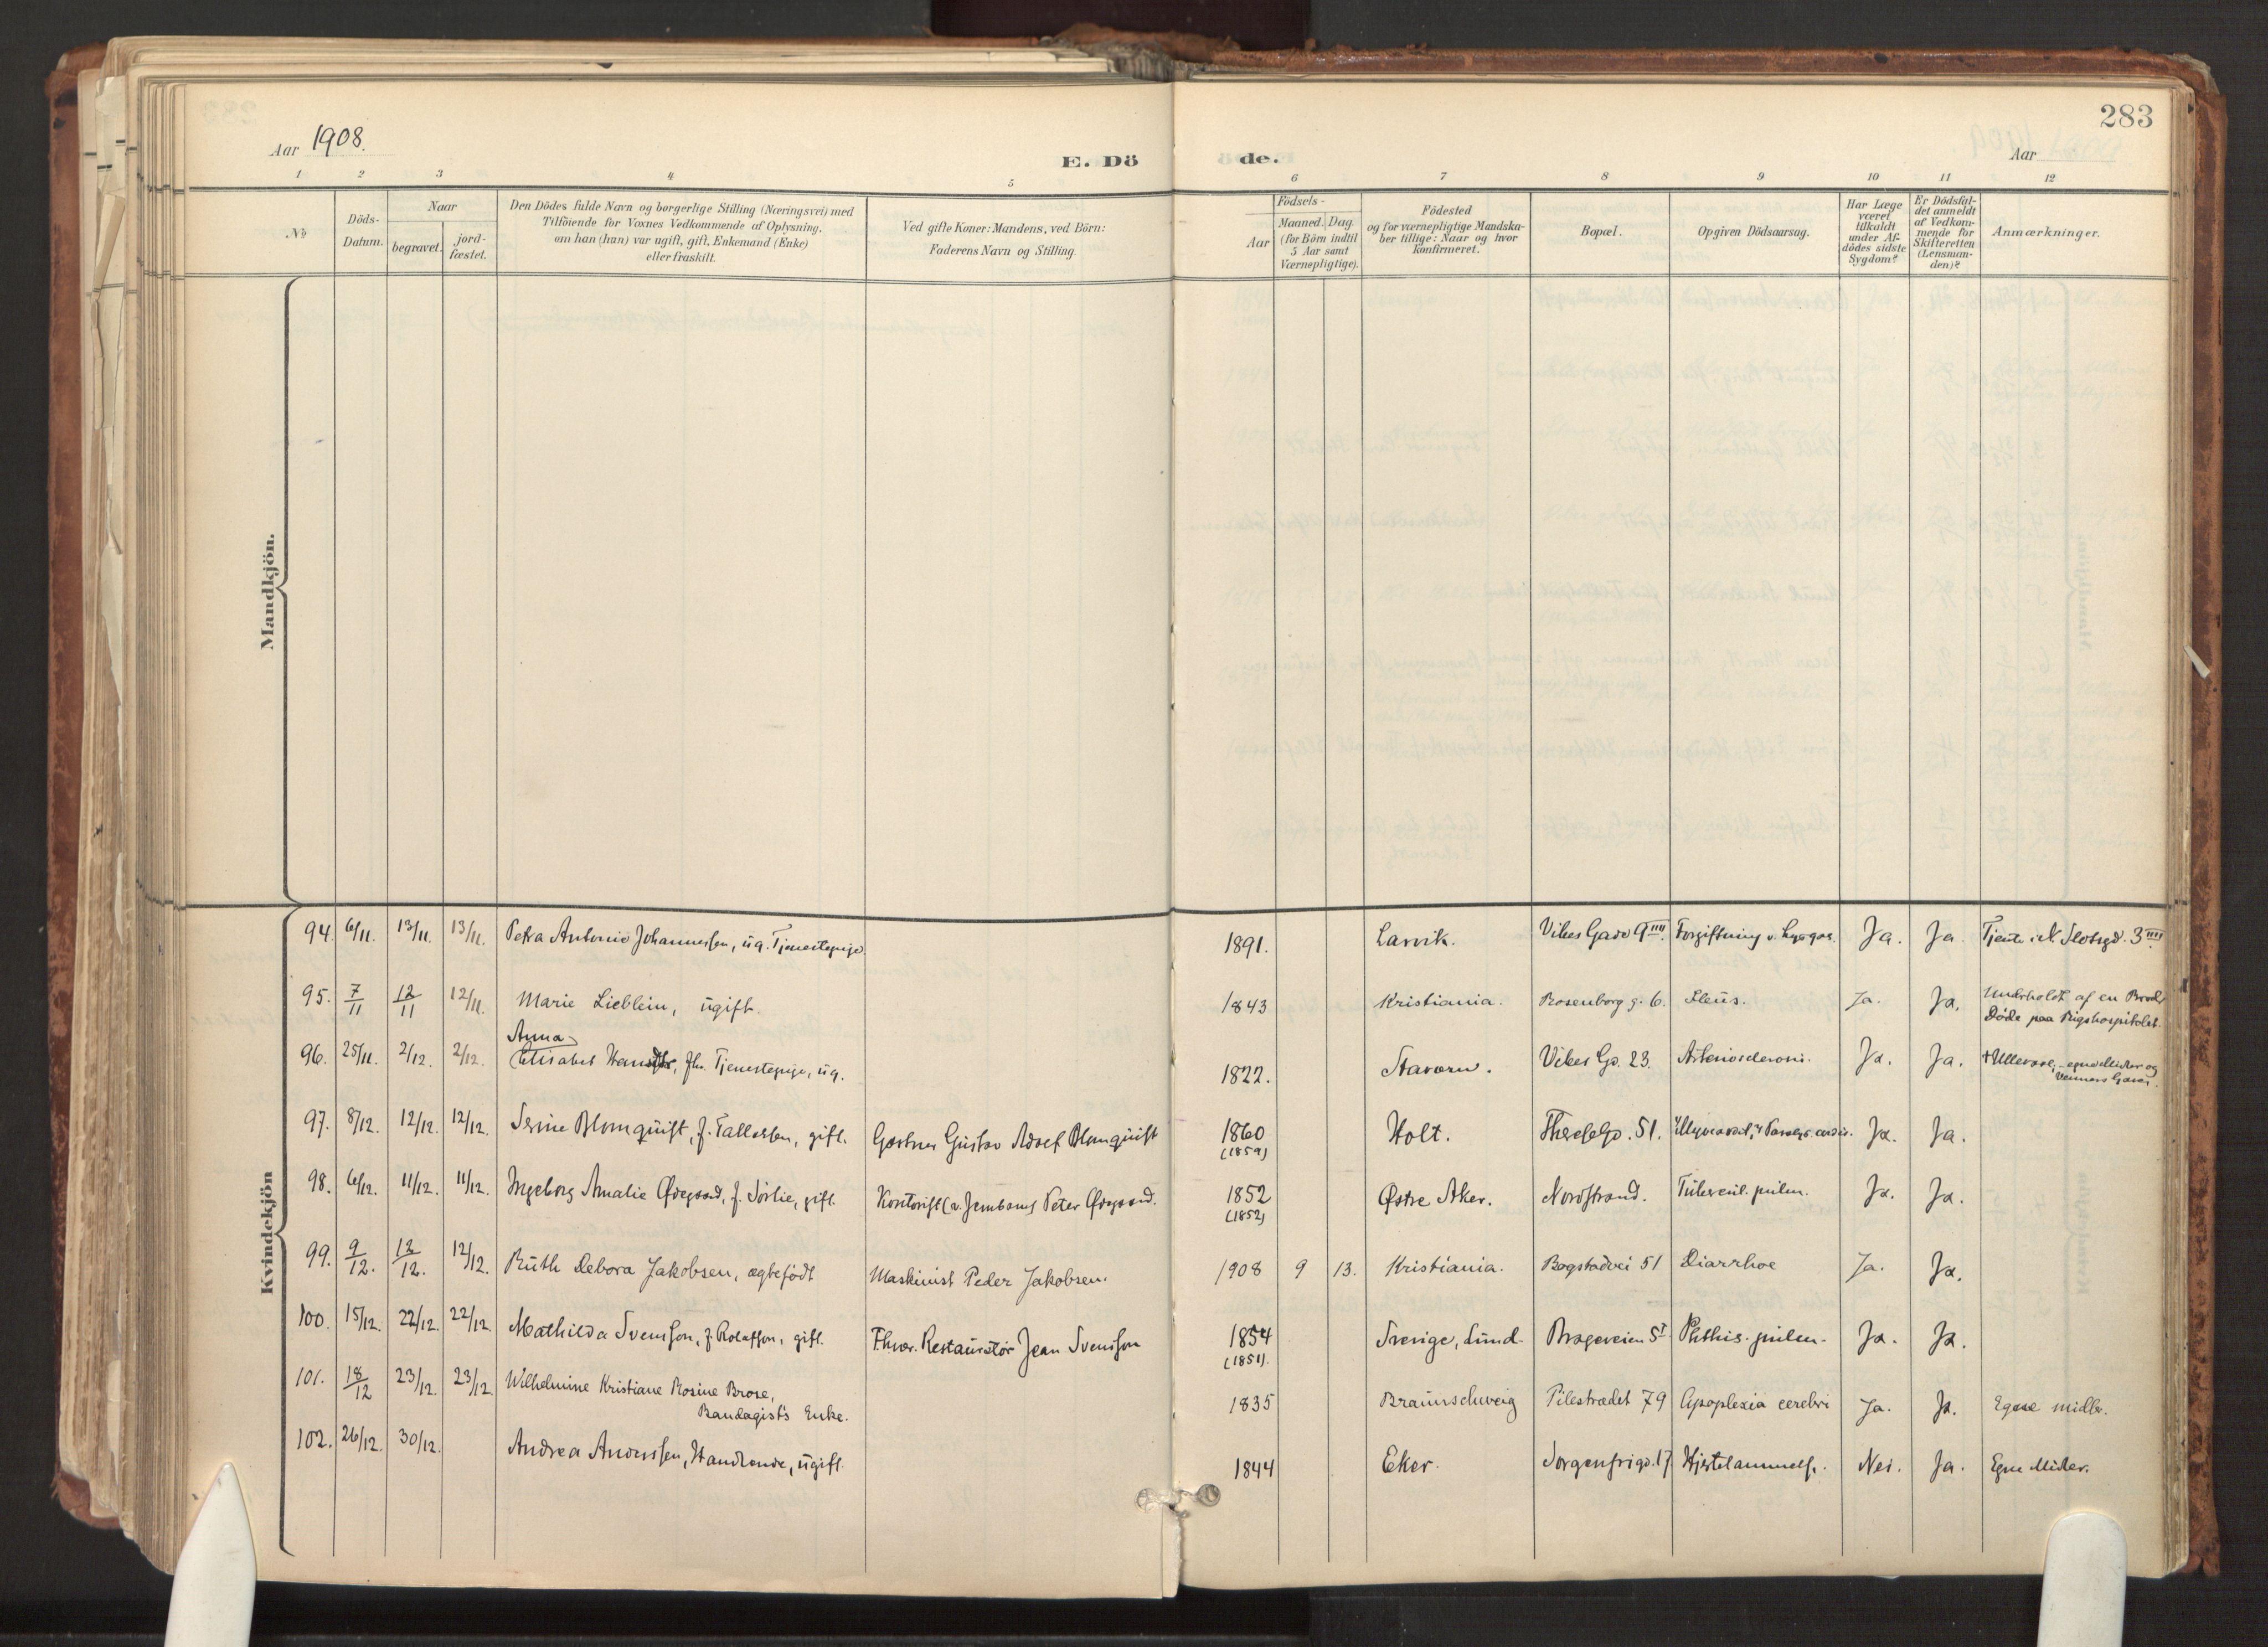 283
Aar 1908.
E. Dö
de.
Aar
1 2 3 4 5 6 7 8 9 10 11 12
No
Döds-
Datum.
Naar
begravet.
jord-
fæstet.
Den Dödes fulde Navn og borgerlige Stilling (Næringsvei) med
Tilföiende for Voxnes Vedkommende af Oplysning,
om han (hun) var ugift, gift, Enkemand (Enke)
eller fraskilt.
Ved gifte Koner: Mandens, ved Börn:
Faderens Navn og Stilling.
Födsels-
Aar
Maaned. Dag
(for Börn indtil
5 Aar samt
Værnepligtige).
Födested
og for værnepligtige Mandska-
ber tillige: Naar og hvor
konfirmeret.
Bopæl.
Opgiven Dödsaarsag.
Har Læge
været
tilkaldt
under Af-
dödes sidste
Sygdom?
Er Dödsfal-
det anmeldt
af Vedkom-
mende for
Skifteretten
(Lensman-
den)?
Anmærkninger.
Mandkjön.
Kvindekjön
94. 6/11. 13/11. 13/11. Petra Antonie Johannessen, ug. Tjenestepige. 1891. Larvik. Vibes Gade 9 IIII. Forgiftning v. Lysgas. Ja. Ja. Tjente i N. Slotsgd. 3 IIII
95. 7/11 12/11 12/11. Marie Lieblein, ugift. 1843 Kristiania. Rosenborg g. 6. Ileus. Ja. Ja. Underholdt af en Brod.
Døde paa Rigshospitalet.
Anna
96. 25/11. 2/12. 2/12. Elisabet fhv. Tjenestepige, ug. 1822. Stavern. Vibes Gd. 23. Ja. Ja. †Ullevaal, egne Midler og
Venners Gaver.
97. 8/12. 12/12. 12/12. Serine Blomquist, f. Tallaksen, gift. Gartner Gustav Adolf Blomquist 1860 Holt. Theresegd. 51. Ja. Ja.
(1859)
98. 6/12. 11/12. 11/12. Ingeborg Amalie Ødegaard, f. Sørlie, gift. Kontorist (v. Jernbane) Peter Ødegaard. 1852 Østre Aker. Nordstrand. Tubercul. pulm. Ja. Ja.
(1852)
99. 9/12. 12/12. 12/12. Ruth Debora Jakobsen, ægtefødt Maskinist Peder Jakobsen. 1908 9 13. Kristiania. Bogstadvei 51 Diarrhoe Ja. Ja.
100. 15/12. 22/12. 22/12. Mathilda Svensson, f. Rolafson, gift. Fhvr. Restauratør Jean Svensson 1854 Sverige, Lund. Brageveien 5 I. Phthis. pulm. Ja. Ja.
(1851).
101. 18/12 23/12. 23/12. Wilhelmine Kristiane Rosine Brose,
Bandagist's Enke. 1835 Braunschweig Pilestrædet 79 Apoplexia cerebri Ja. Ja. Egne midler.
102. 26/12. 30/12. Andrea Anderssen, Handlende, ugift. 1844 Eker. Sorgenfrigd. 17 Hjertelammelse. Nei. Ja. Egne Midler.